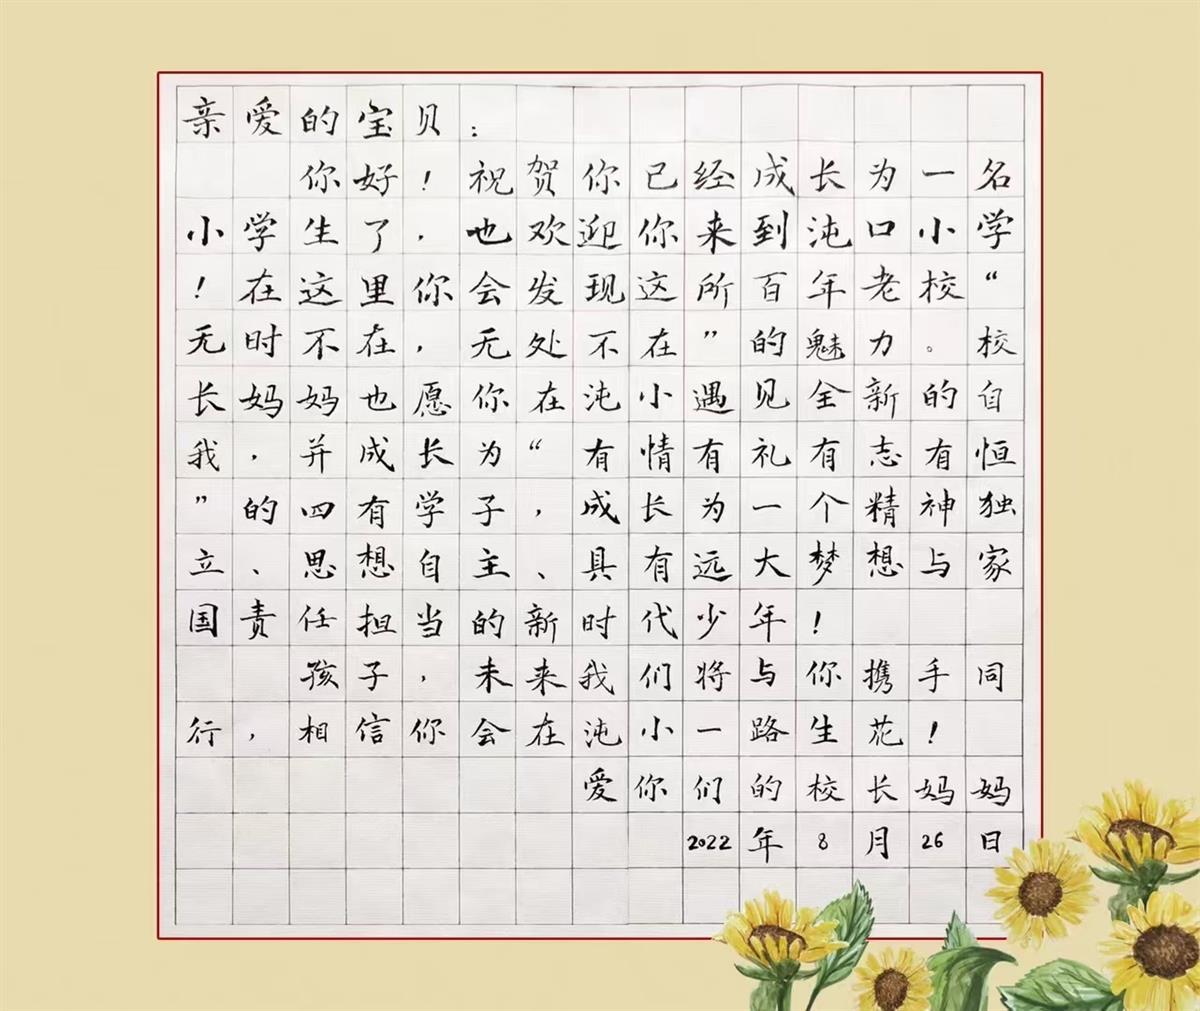 亲爱的宝贝：
你好！祝贺你已经成长为一名
小学生了，也欢迎你来到沌口小学
！在这里你会发现这所百年老校“
无时不在，无处不在”的魅力。校
长妈妈也愿你在沌小遇见全新的自
我，并成长为“有情有礼有志有恒
”的四有学子，成长为一个精神独
立、思想自主、具有远大梦想与家
国责任担当的新时代少年！
孩子，未来我们将与你携手同
行，相信你会在沌小一路生花！
爱你们的校长妈妈
2022年8月26日